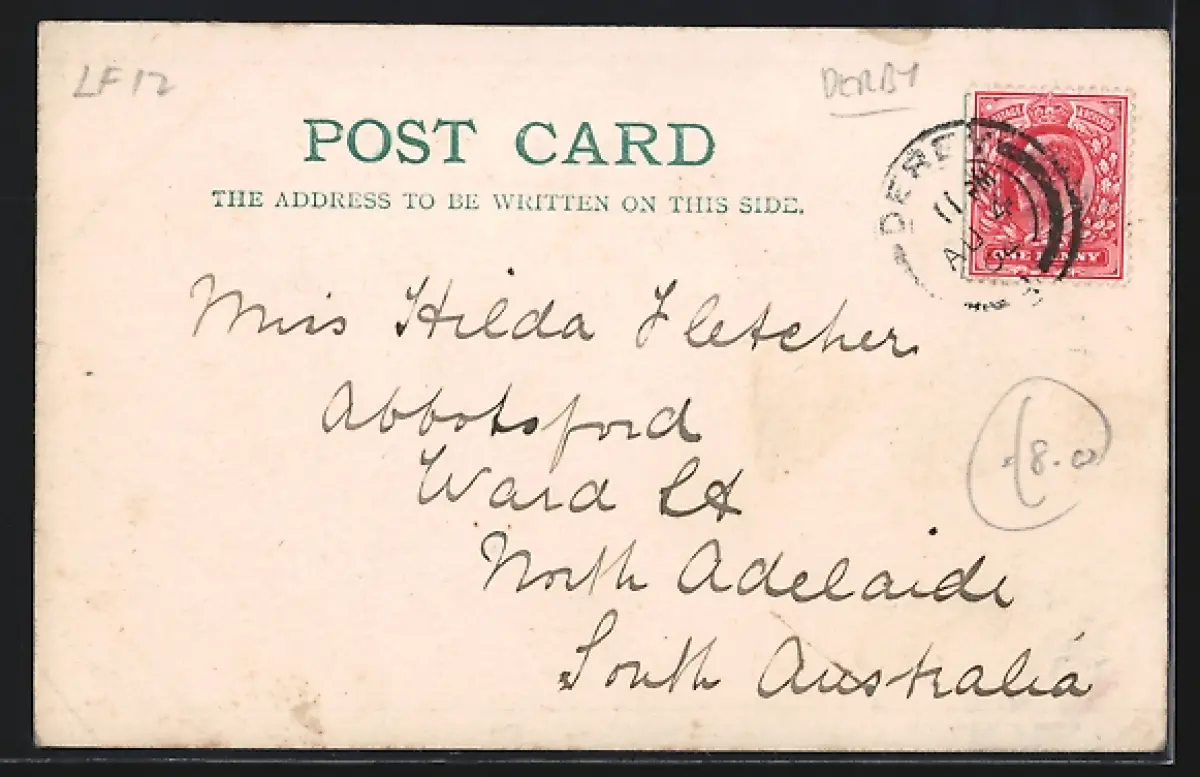 LF12
DERBY
POST CARD
THE ADDRESS TO BE WRITTEN ON THIS SIDE.
DERBY
11
AU 4
04
ONE PENNY
Miss Hilda Fletcher
Abbotsford
Ward St
North Adelaide
South Australia
8.00